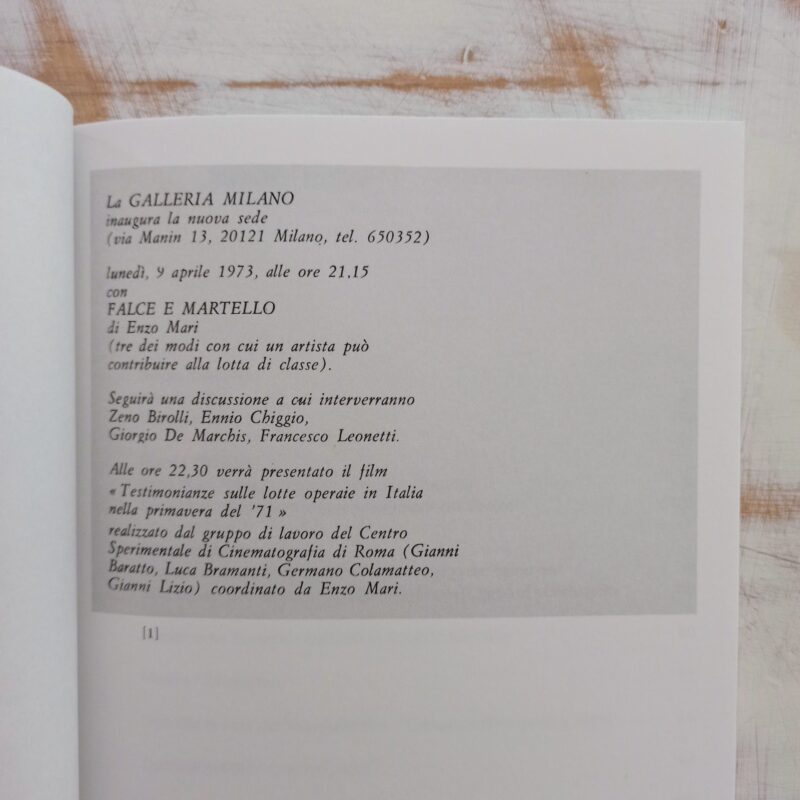 La GALLERIA MILANO
inaugura la nuova sede
(via Manin 13, 20121 Milano, tel. 650352)
lunedì, 9 aprile 1973, alle ore 21,15
con
FALCE E MARTELLO
di Enzo Mari
(tre dei modi con cui un artista può
contribuire alla lotta di classe).
Seguirà una discussione a cui interverranno
Zeno Birolli, Ennio Chiggio,
Giorgio De Marchis, Francesco Leonetti.
Alle ore 22,30 verrà presentato il film
« Testimonianze sulle lotte operaie in Italia
nella primavera del '71 »
realizzato dal gruppo di lavoro del Centro
Sperimentale di Cinematografia di Roma (Gianni
Baratto, Luca Bramanti, Germano Colamatteo,
Gianni Lizio) coordinato da Enzo Mari.
[1]